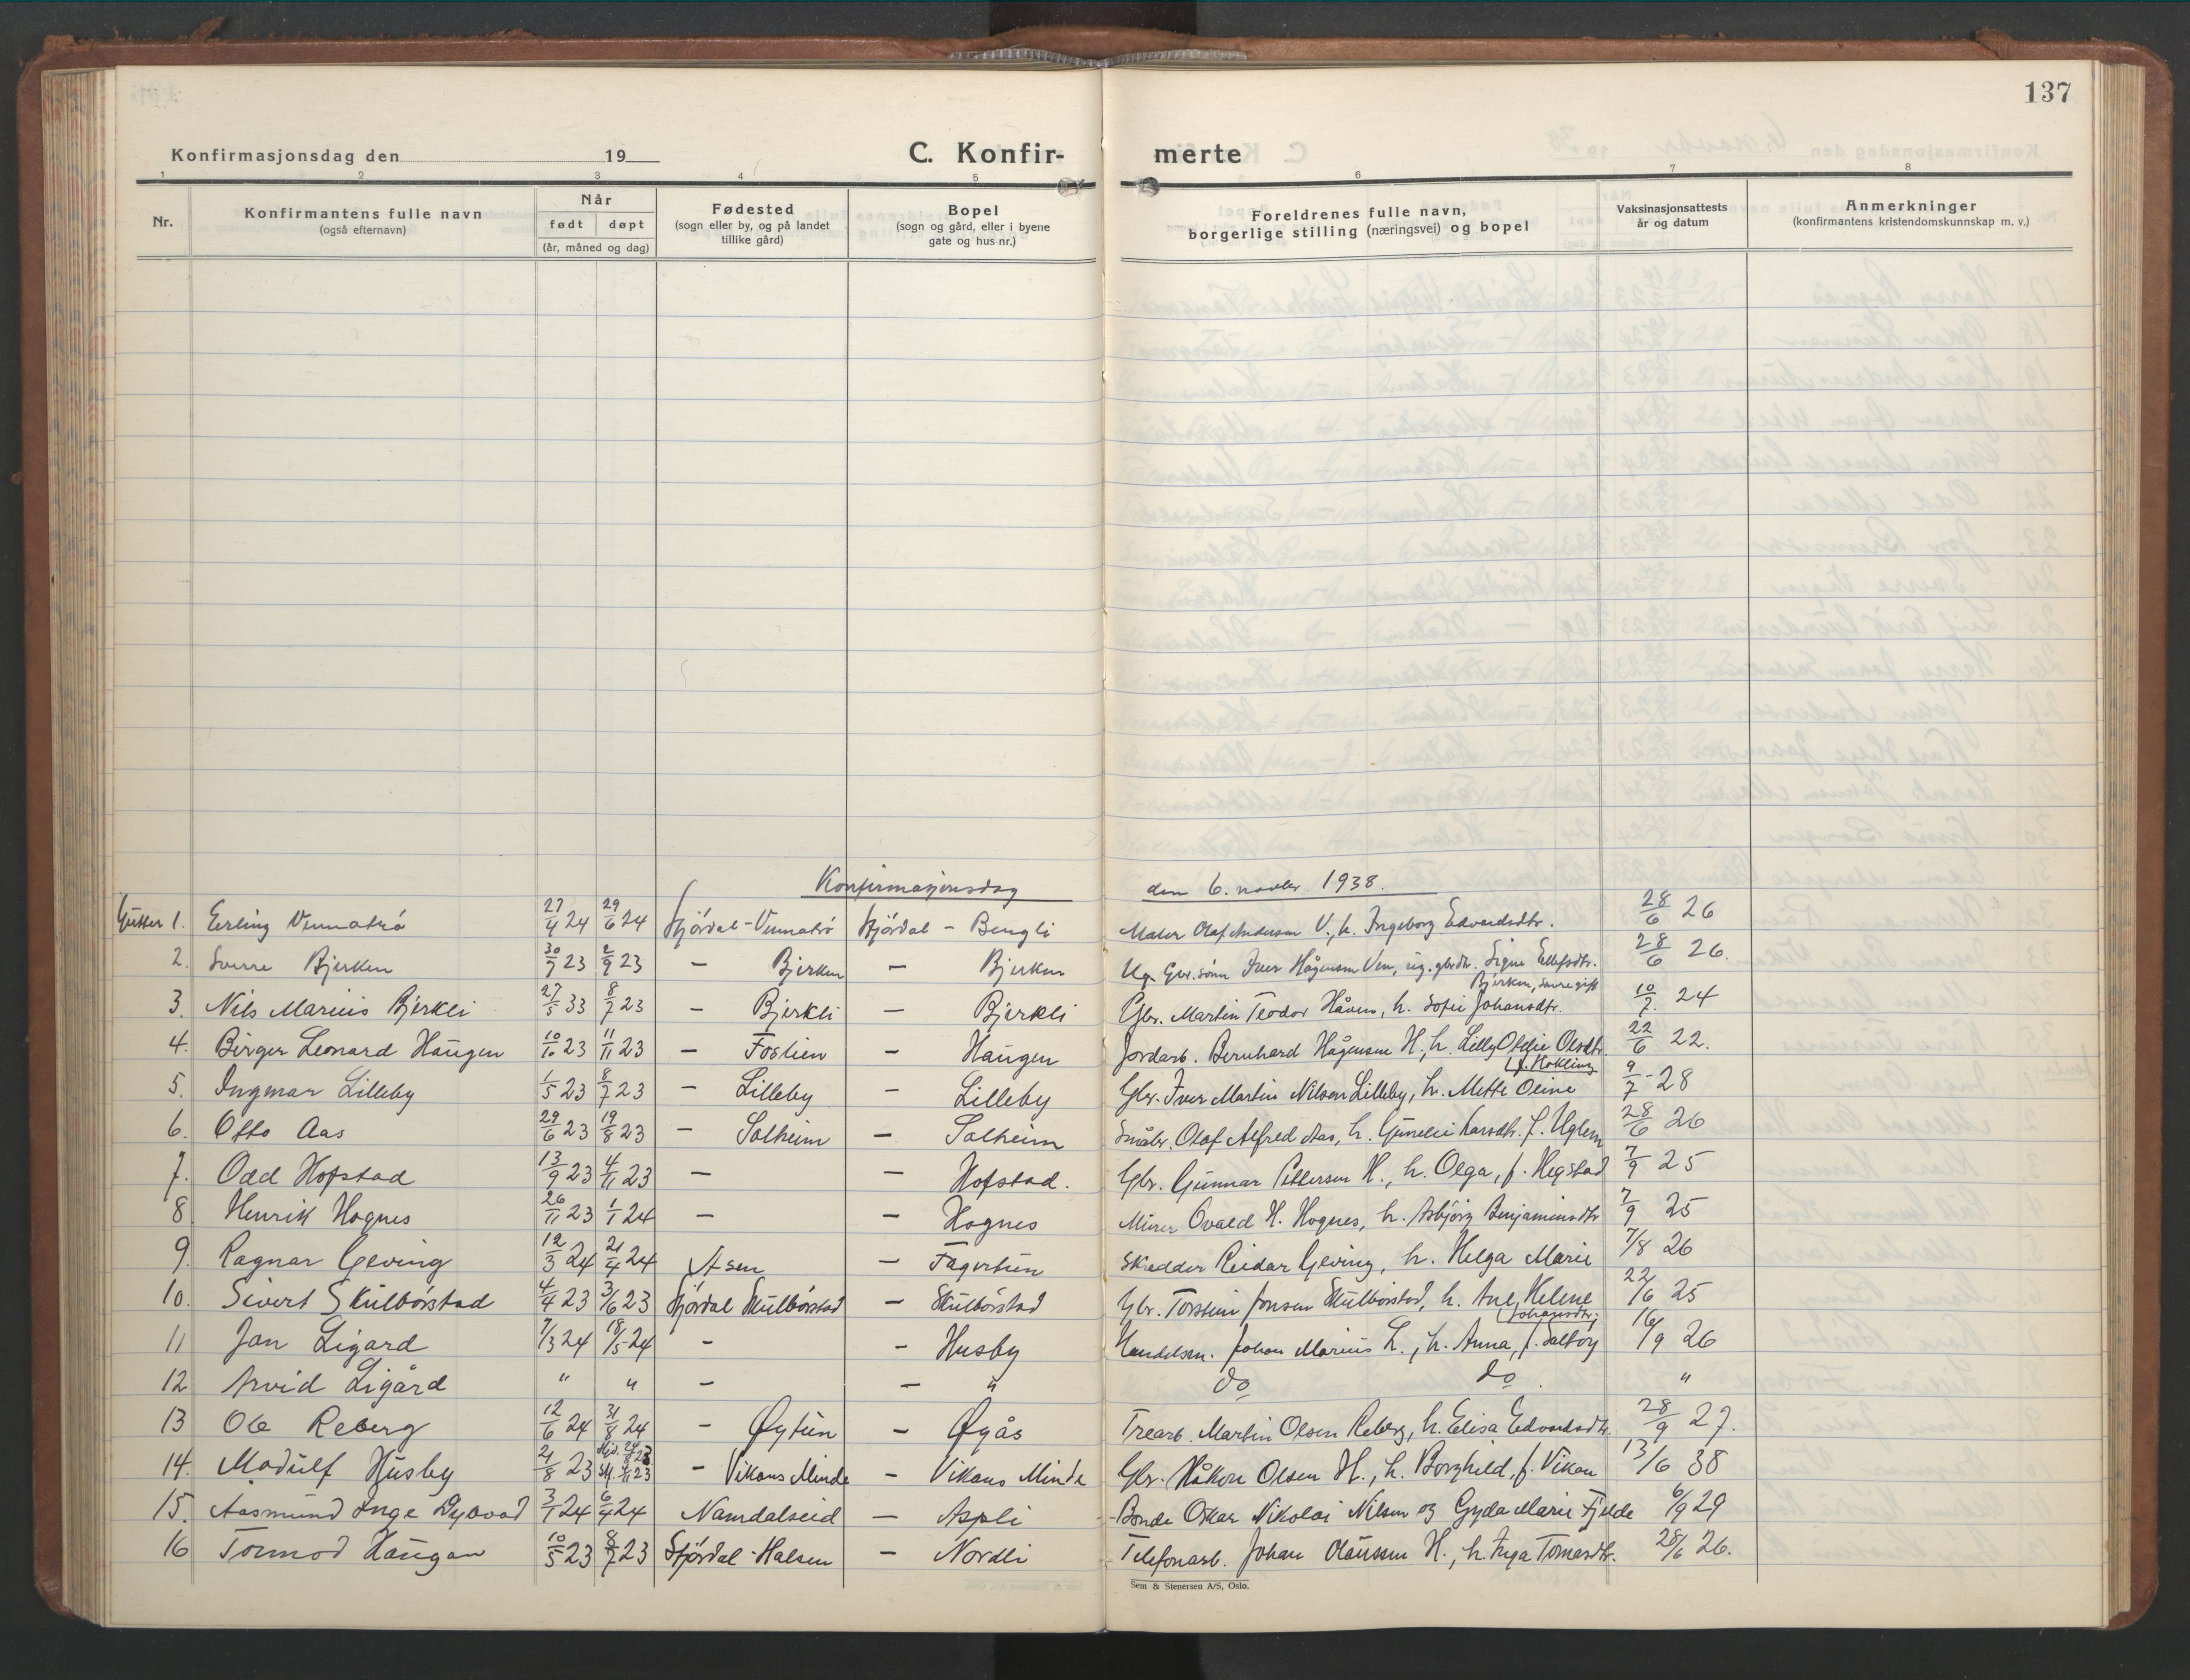 137
Konfirmasjonsdag den 19 C. Konfir- merte
1 2 3 4 5 6 7 8
Nr. Konfirmantens fulle navn (også efternavn) Når født døpt (år, måned og dag) Fødested (sogn eller by, og på landet tillike gård) Bopel (sogn og gård, eller i byene gate og hus nr.) Foreldrenes fulle navn, borgerlige stilling (næringsvei) og bopel Vaksinasjonsattests år og datum Anmerkninger (konfirmantens kristendomskunnskap m. v.)
Konfirmasjonsdag den 6. novbr. 1938.
Gutter 1. Erling Vennatrø 27/4 24 29/6 24 Stjørdal-Vennatrø Stjørdal - Bengli Maler Olaf Andersen V., h. Ingeborg Edvardsdtr. 28/6 26
2. Sverre Bjerken 30/7 23 2/9 23 - Bjerken - Bjerken Ug. Gbr.sønn Iver Hågensen Ven, ug. gbrdtr. Signe Ellefsdtr. Bjerken, senere gift 28/6 26.
3. Nils Marius Bjerkli 27/5 33 8/7 23 - Bjerkli - Bjerkli Gbr. Martin Teodor Håven, h. Sofie Johansdtr. 10/7. 24
4. Birger Leonard Haugen 10/10 23 11/11 23 - Foslien - Haugen Jordarb. Bernhard Hågensen H., h. Lilly Otelie Olsdtr. 22/6 22.
5. Ingmar Lilleby 1/5 23 8/7 23 - Lilleby - Lilleby Gbr. Iver Martin Nilsen Lilleby, h. Mette Oline f. Kokling 9/7 - 28
6. Otto Aas 29/6 23 19/8 23 - Solheim - Solheim Småbr. Olaf Alfred Aas, h. Gunelie Larsdtr. f. Uglem 28/6 26
7. Odd Hofstad 13/9 23 4/11 23 - - Hofstad. Gbr. Gunnar Pettersen H., h. Olga, f. Hegstad 7/9 25
8. Henrik Hognes 26/11 23 1/1 24 - - Hognes Murer Ovald H. Hognes, h. Asbjørg Benjaminsdtr 7/9 25
9. Ragnar Geving 12/3 24 21/4 24 Åsen - Fagertun Skredder Reidar Geving, h. Helga Marie 7/8 26
10. Sivert Skulbørstad 4/4 23 3/6 23 Stjørdal Skulbørstad - Skulbørstad Gbr. Torstein Jonsen Skulbørstad, h. Ane Helene Johansdtr. 22/6 25
11 Jan Ligard 7/3 24 18/5 24 - - Husby Handelsm. Johan Marius L., h. Anna, f. Salberg 16/9 26
12 Arvid Ligård " " - - " do do. "
13 Ole Reberg 12/6 24 31/8 24 - Øytun - Øyås Trearb. Martin Olsen Reberg, h. Elisa Edvardsdtr. 28/9 27.
14. Modulf Husby 21/8 23 4/11 23 - Vikans Minde - Vikans Minde Gbr. Håkon Olsen H., h. Borghild, f. Vikan 13/6 38
15. Aasmund Inge Dyrvad 3/1 24 6/4 24 Namdalseid - Aspli Bonde Oskar Nikolai Nilsen og Gyda Marie Fjelde 6/9 29
16 Tormod Haugan 10/5 23 8/7 23 Stjørdal - Halsen - Nordli Telefonarb. Johan Olaussen H., h. Inga Tomasdtr. 28/6 26.
Sem & Stenersen A/S, Oslo.